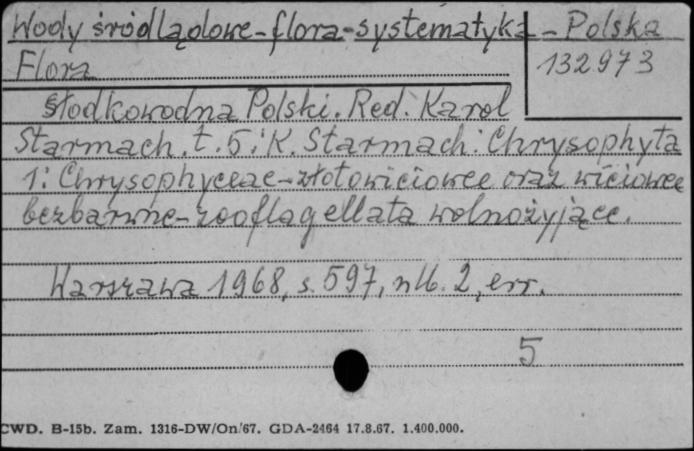 Wody śródlądowe - flora - systematyka - Polska
Flora
132973
słodkowodna Polski. Red. Karol
Starmach. t. 5: K. Starmach: Chrysophyta
1: Chrysophyceae - złotowiciowce oraz wiciowce
bezbarwne - zooflagellata wolnożyjące.
Warszawa 1968, s. 597, nlb. 2, err.
5
CWD. B-15b. Zam. 1316-DW/On/67. GDA-2464 17.8.67. 1.400.000.